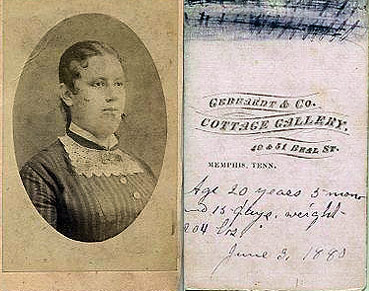 GEBHARDT & CO.
COTTAGE GALLERY,
49 & 51 BEAL ST.
MEMPHIS, TENN.
Age 20 years 5 mon
and 15 days, weight-
204 lbs.
June 3, 1880